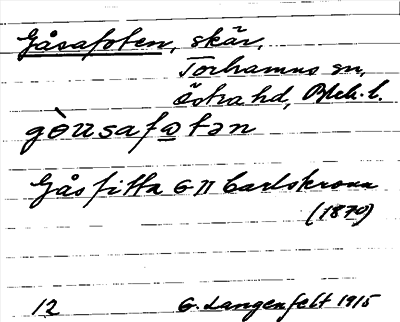 Gåsafoten, skär,
Torhamns sn,
Östra hd, Blek. l.
gòusafotən
Gåsfitta GΠ Carlskrona
(1870)
12 G. Langenfelt 1915